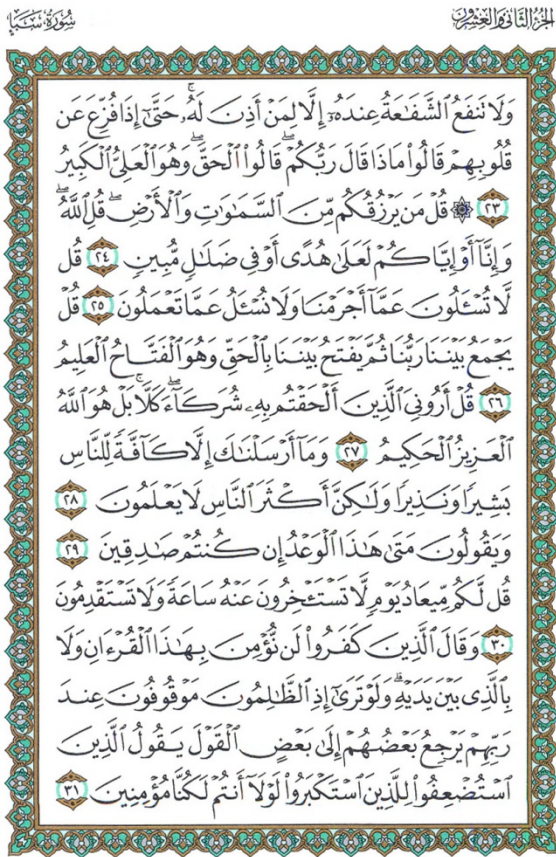 الجزء الثاني والعشرون
سورة سبإ
وَلَا تَنفَعُ ٱلشَّفَٰعَةُ عِندَهُۥٓ إِلَّا لِمَنْ أَذِنَ لَهُۥ ۚ حَتَّىٰٓ إِذَا فُزِّعَ عَن
قُلُوبِهِمْ قَالُوا۟ مَاذَا قَالَ رَبُّكُمْ ۖ قَالُوا۟ ٱلْحَقَّ ۖ وَهُوَ ٱلْعَلِىُّ ٱلْكَبِيرُ
٢٣ ۞ قُلْ مَن يَرْزُقُكُم مِّنَ ٱلسَّمَٰوَٰتِ وَٱلْأَرْضِ ۖ قُلِ ٱللَّهُ ۖ
وَإِنَّآ أَوْ إِيَّاكُمْ لَعَلَىٰ هُدًى أَوْ فِى ضَلَٰلٍ مُّبِينٍ ٢٤ قُل
لَّا تُسْـَٔلُونَ عَمَّآ أَجْرَمْنَا وَلَا نُسْـَٔلُ عَمَّا تَعْمَلُونَ ٢٥ قُلْ
يَجْمَعُ بَيْنَنَا رَبُّنَا ثُمَّ يَفْتَحُ بَيْنَنَا بِٱلْحَقِّ وَهُوَ ٱلْفَتَّاحُ ٱلْعَلِيمُ
٢٦ قُلْ أَرُونِىَ ٱلَّذِينَ أَلْحَقْتُم بِهِۦ شُرَكَآءَ ۖ كَلَّا ۚ بَلْ هُوَ ٱللَّهُ
ٱلْعَزِيزُ ٱلْحَكِيمُ ٢٧ وَمَآ أَرْسَلْنَٰكَ إِلَّا كَآفَّةً لِّلنَّاسِ
بَشِيرًا وَنَذِيرًا وَلَٰكِنَّ أَكْثَرَ ٱلنَّاسِ لَا يَعْلَمُونَ ٢٨
وَيَقُولُونَ مَتَىٰ هَٰذَا ٱلْوَعْدُ إِن كُنتُمْ صَٰدِقِينَ ٢٩
قُل لَّكُم مِّيعَادُ يَوْمٍ لَّا تَسْتَـْٔخِرُونَ عَنْهُ سَاعَةً وَلَا تَسْتَقْدِمُونَ
٣٠ وَقَالَ ٱلَّذِينَ كَفَرُوا۟ لَن نُّؤْمِنَ بِهَٰذَا ٱلْقُرْءَانِ وَلَا
بِٱلَّذِى بَيْنَ يَدَيْهِ ۗ وَلَوْ تَرَىٰٓ إِذِ ٱلظَّٰلِمُونَ مَوْقُوفُونَ عِندَ
رَبِّهِمْ يَرْجِعُ بَعْضُهُمْ إِلَىٰ بَعْضٍ ٱلْقَوْلَ يَقُولُ ٱلَّذِينَ
ٱسْتُضْعِفُوا۟ لِلَّذِينَ ٱسْتَكْبَرُوا۟ لَوْلَآ أَنتُمْ لَكُنَّا مُؤْمِنِينَ ٣١